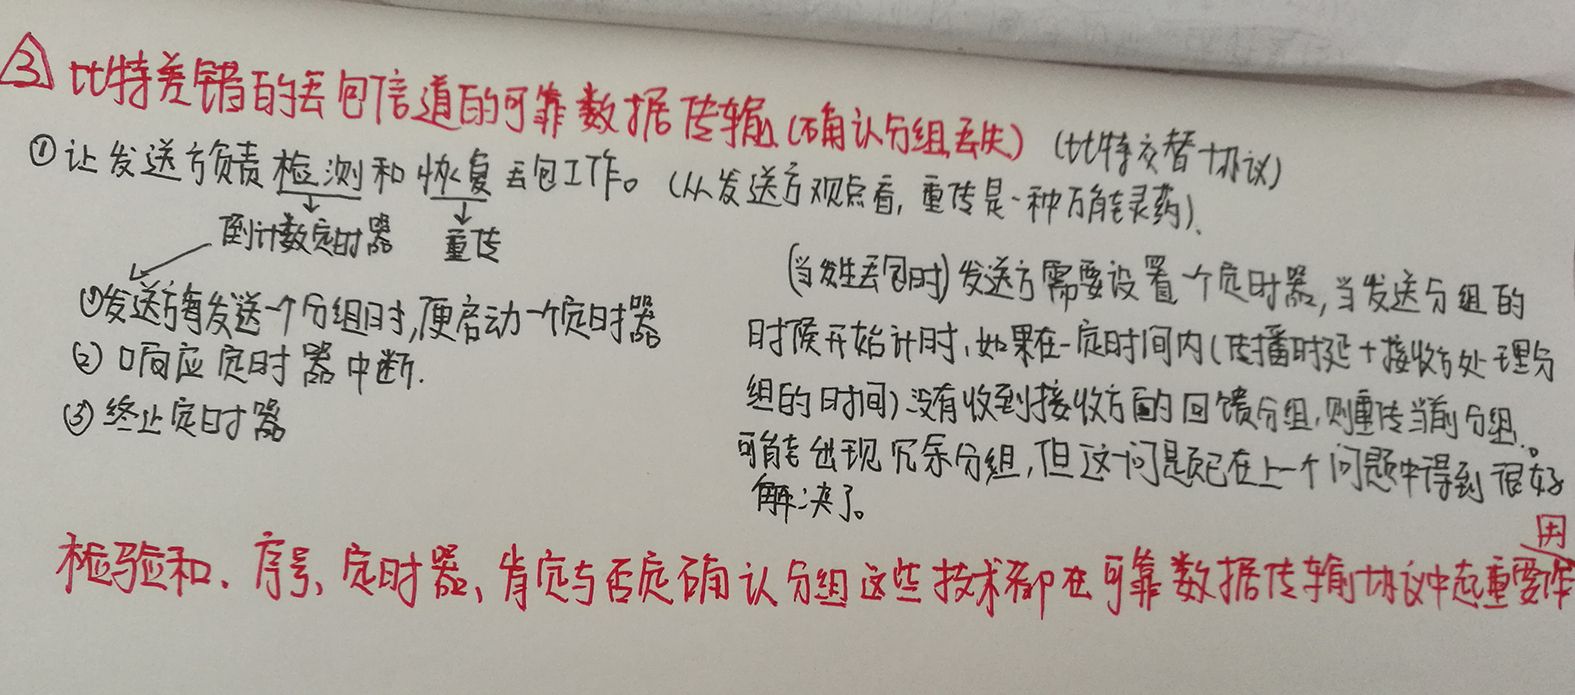 ③ 比特差错的丢包信道的可靠数据传输(确认分组丢失) (比特交替协议)
①让发送方负责检测和恢复丢包工作。(从发送方观点看,重传是一种万能灵药).
倒计数定时器 重传
(1)发送方每发送一个分组时,便启动一个定时器
(2)响应定时器中断.
(3)终止定时器
(当发生丢包时)发送方需要设置一个定时器,当发送分组的
时候开始计时,如果在一定时间内(传播时延+接收方处理分
组的时间)没有收到接收方的回馈分组,则重传当前分组.
可能出现冗余分组,但这个问题已在上一个问题中得到很好
解决了。
检验和、序号、定时器、肯定与否定确认分组这些技术都在可靠数据传输协议中起重要作用